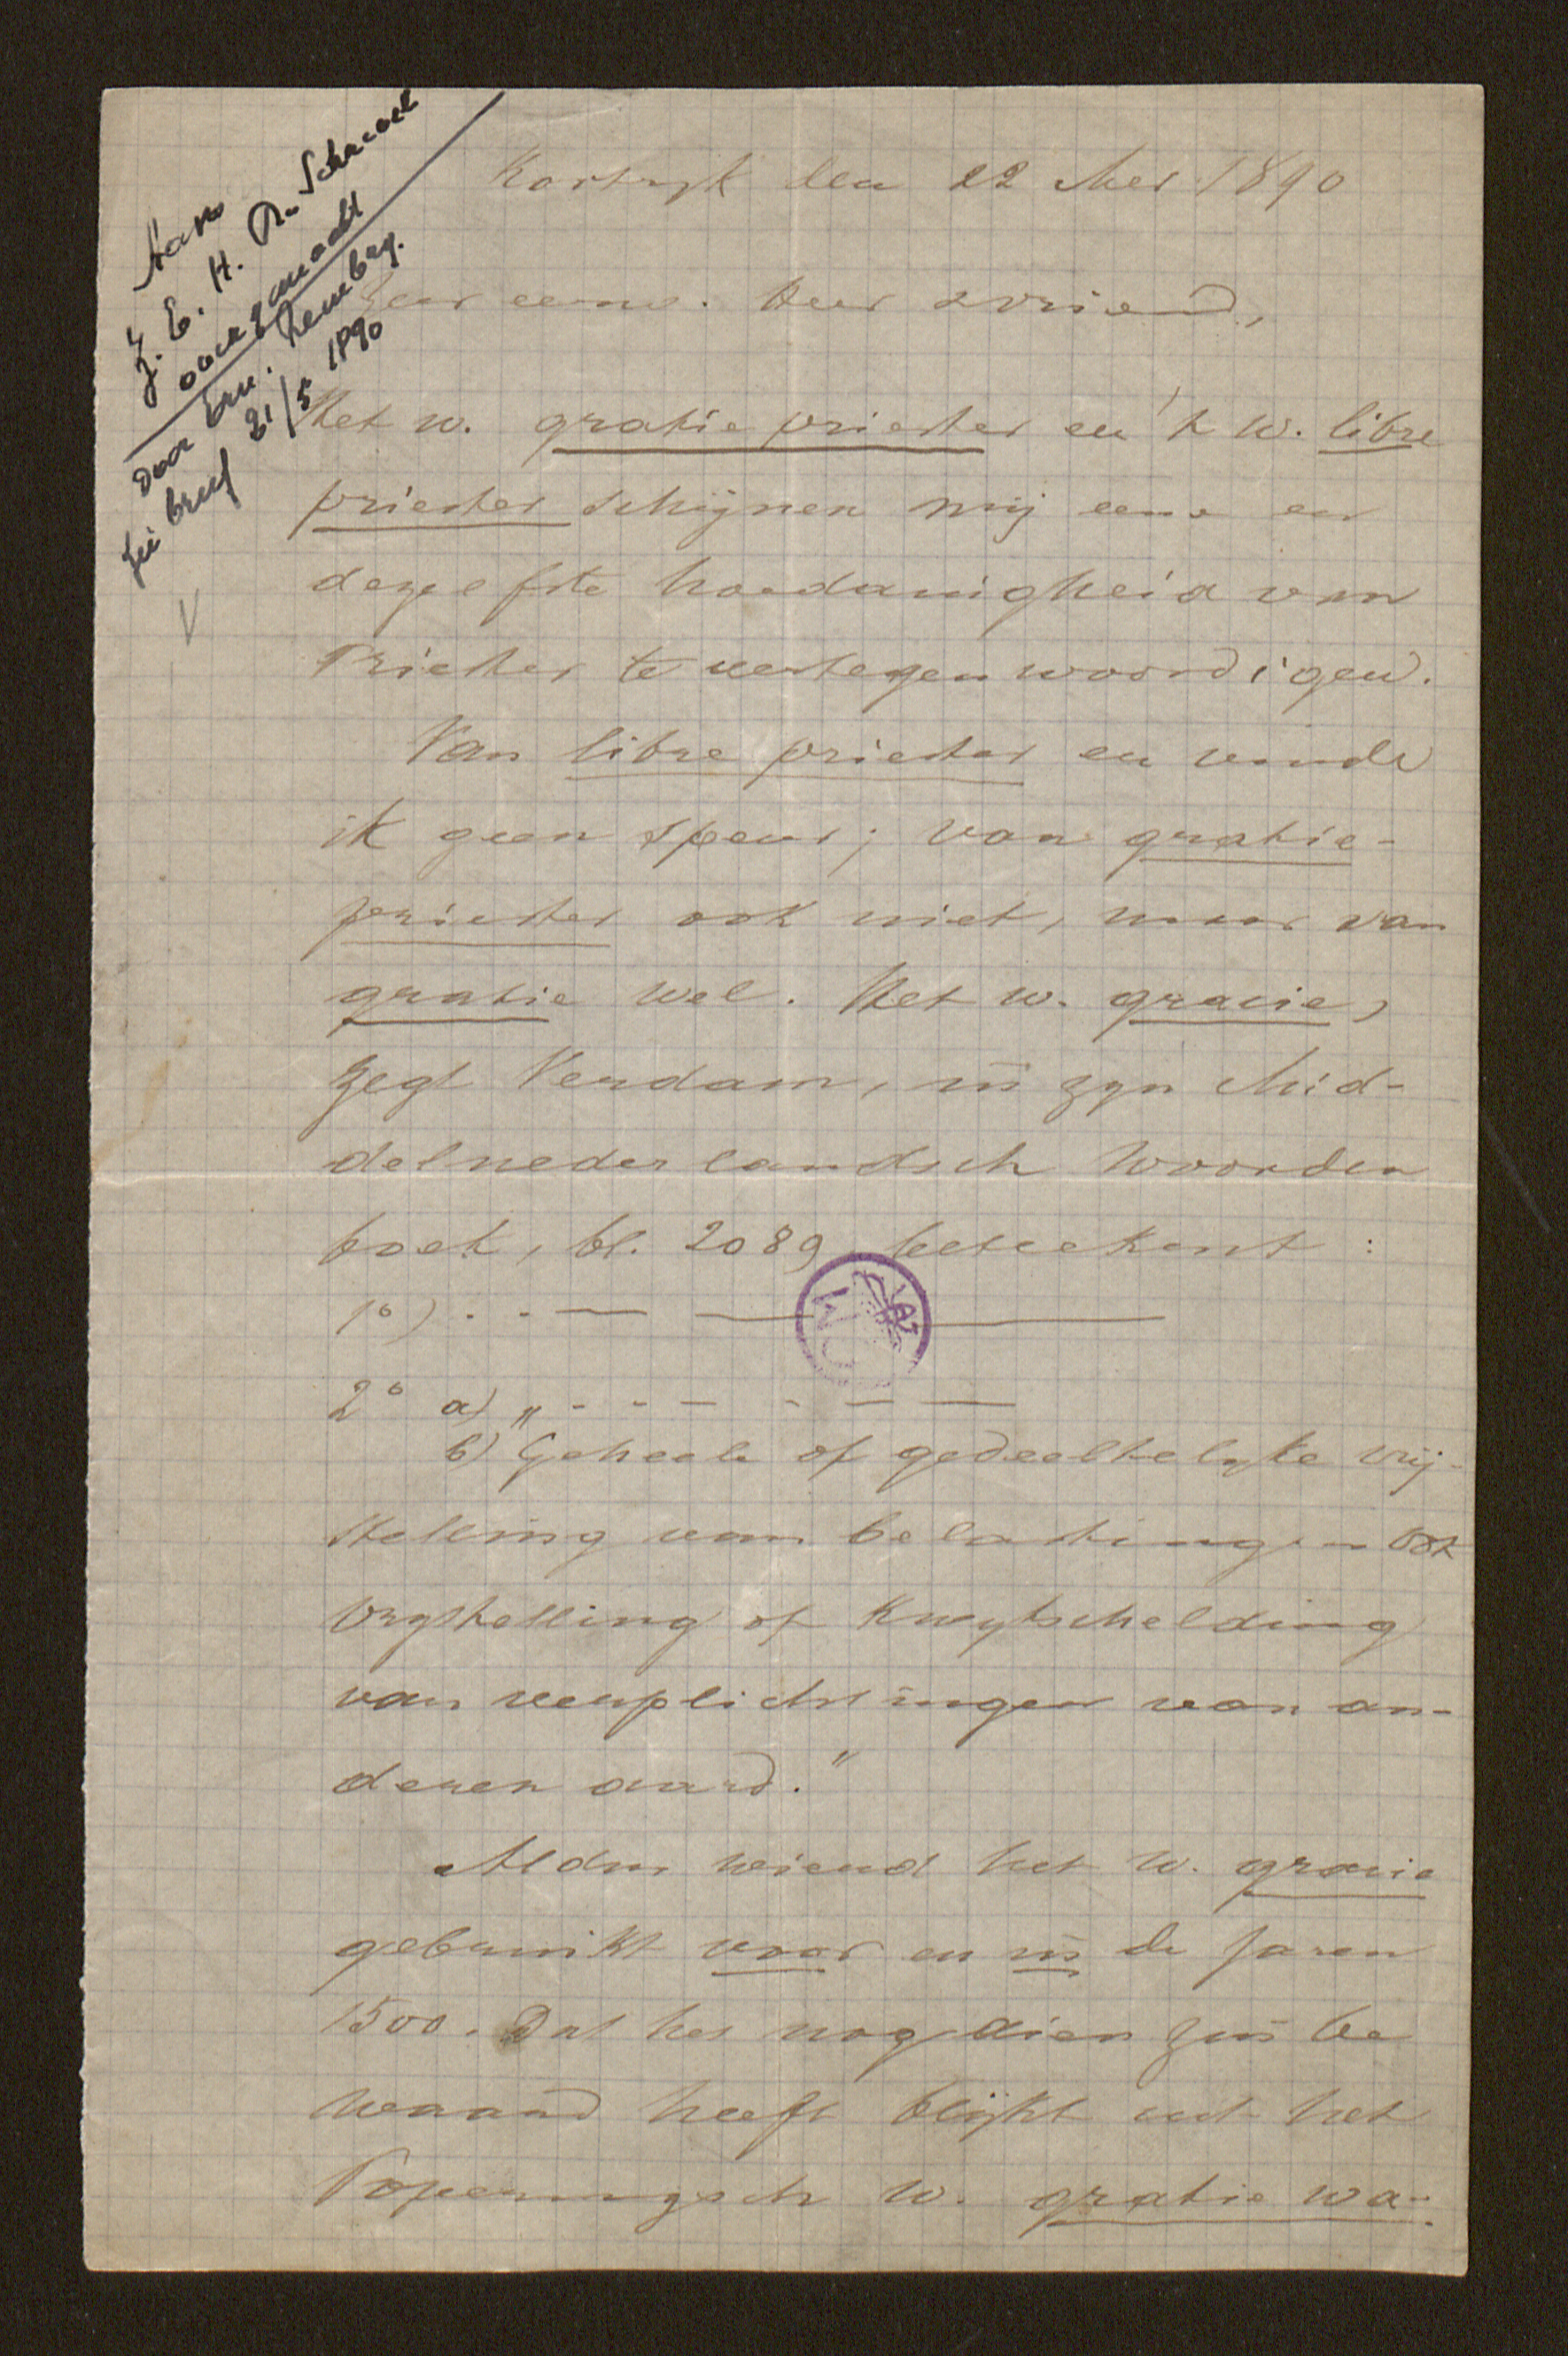 Aan
Z. E. H. De Schrevel
overgemaakt
door bm. Rembry.
zie brief 21/5 1890
Kortryk den 22 Mei 1890
Zeer eerw. Heer & vriend,
Het w. gratie priester en 't w. libre
priester schijnen mij eene en
dezelfste hoedanigheid van
Priester te vertegenwoordigen.
Van libre priester en vinde
ik geen speur; van gratie-
priester ook niet, maar van
gratie wel. Het w. gracie,
zegt Verdam, in zyn Mid-
delnederlandsch Woorden
boek, bl. 2089, beteekent:
1o) . . —
2o a) „ - - -
b) Geheele of gedeeltelyke vrij-
stelling van belastingen ook
vrystelling of kwytschelding
van verplichtingen van an-
deren aard."
Aldus wierd het w. gracie
gebruikt voor en in de jaren
1500. Dat het nog dien zin be
waard heeft blijkt uit het
Poperingsch w. gratie wa-